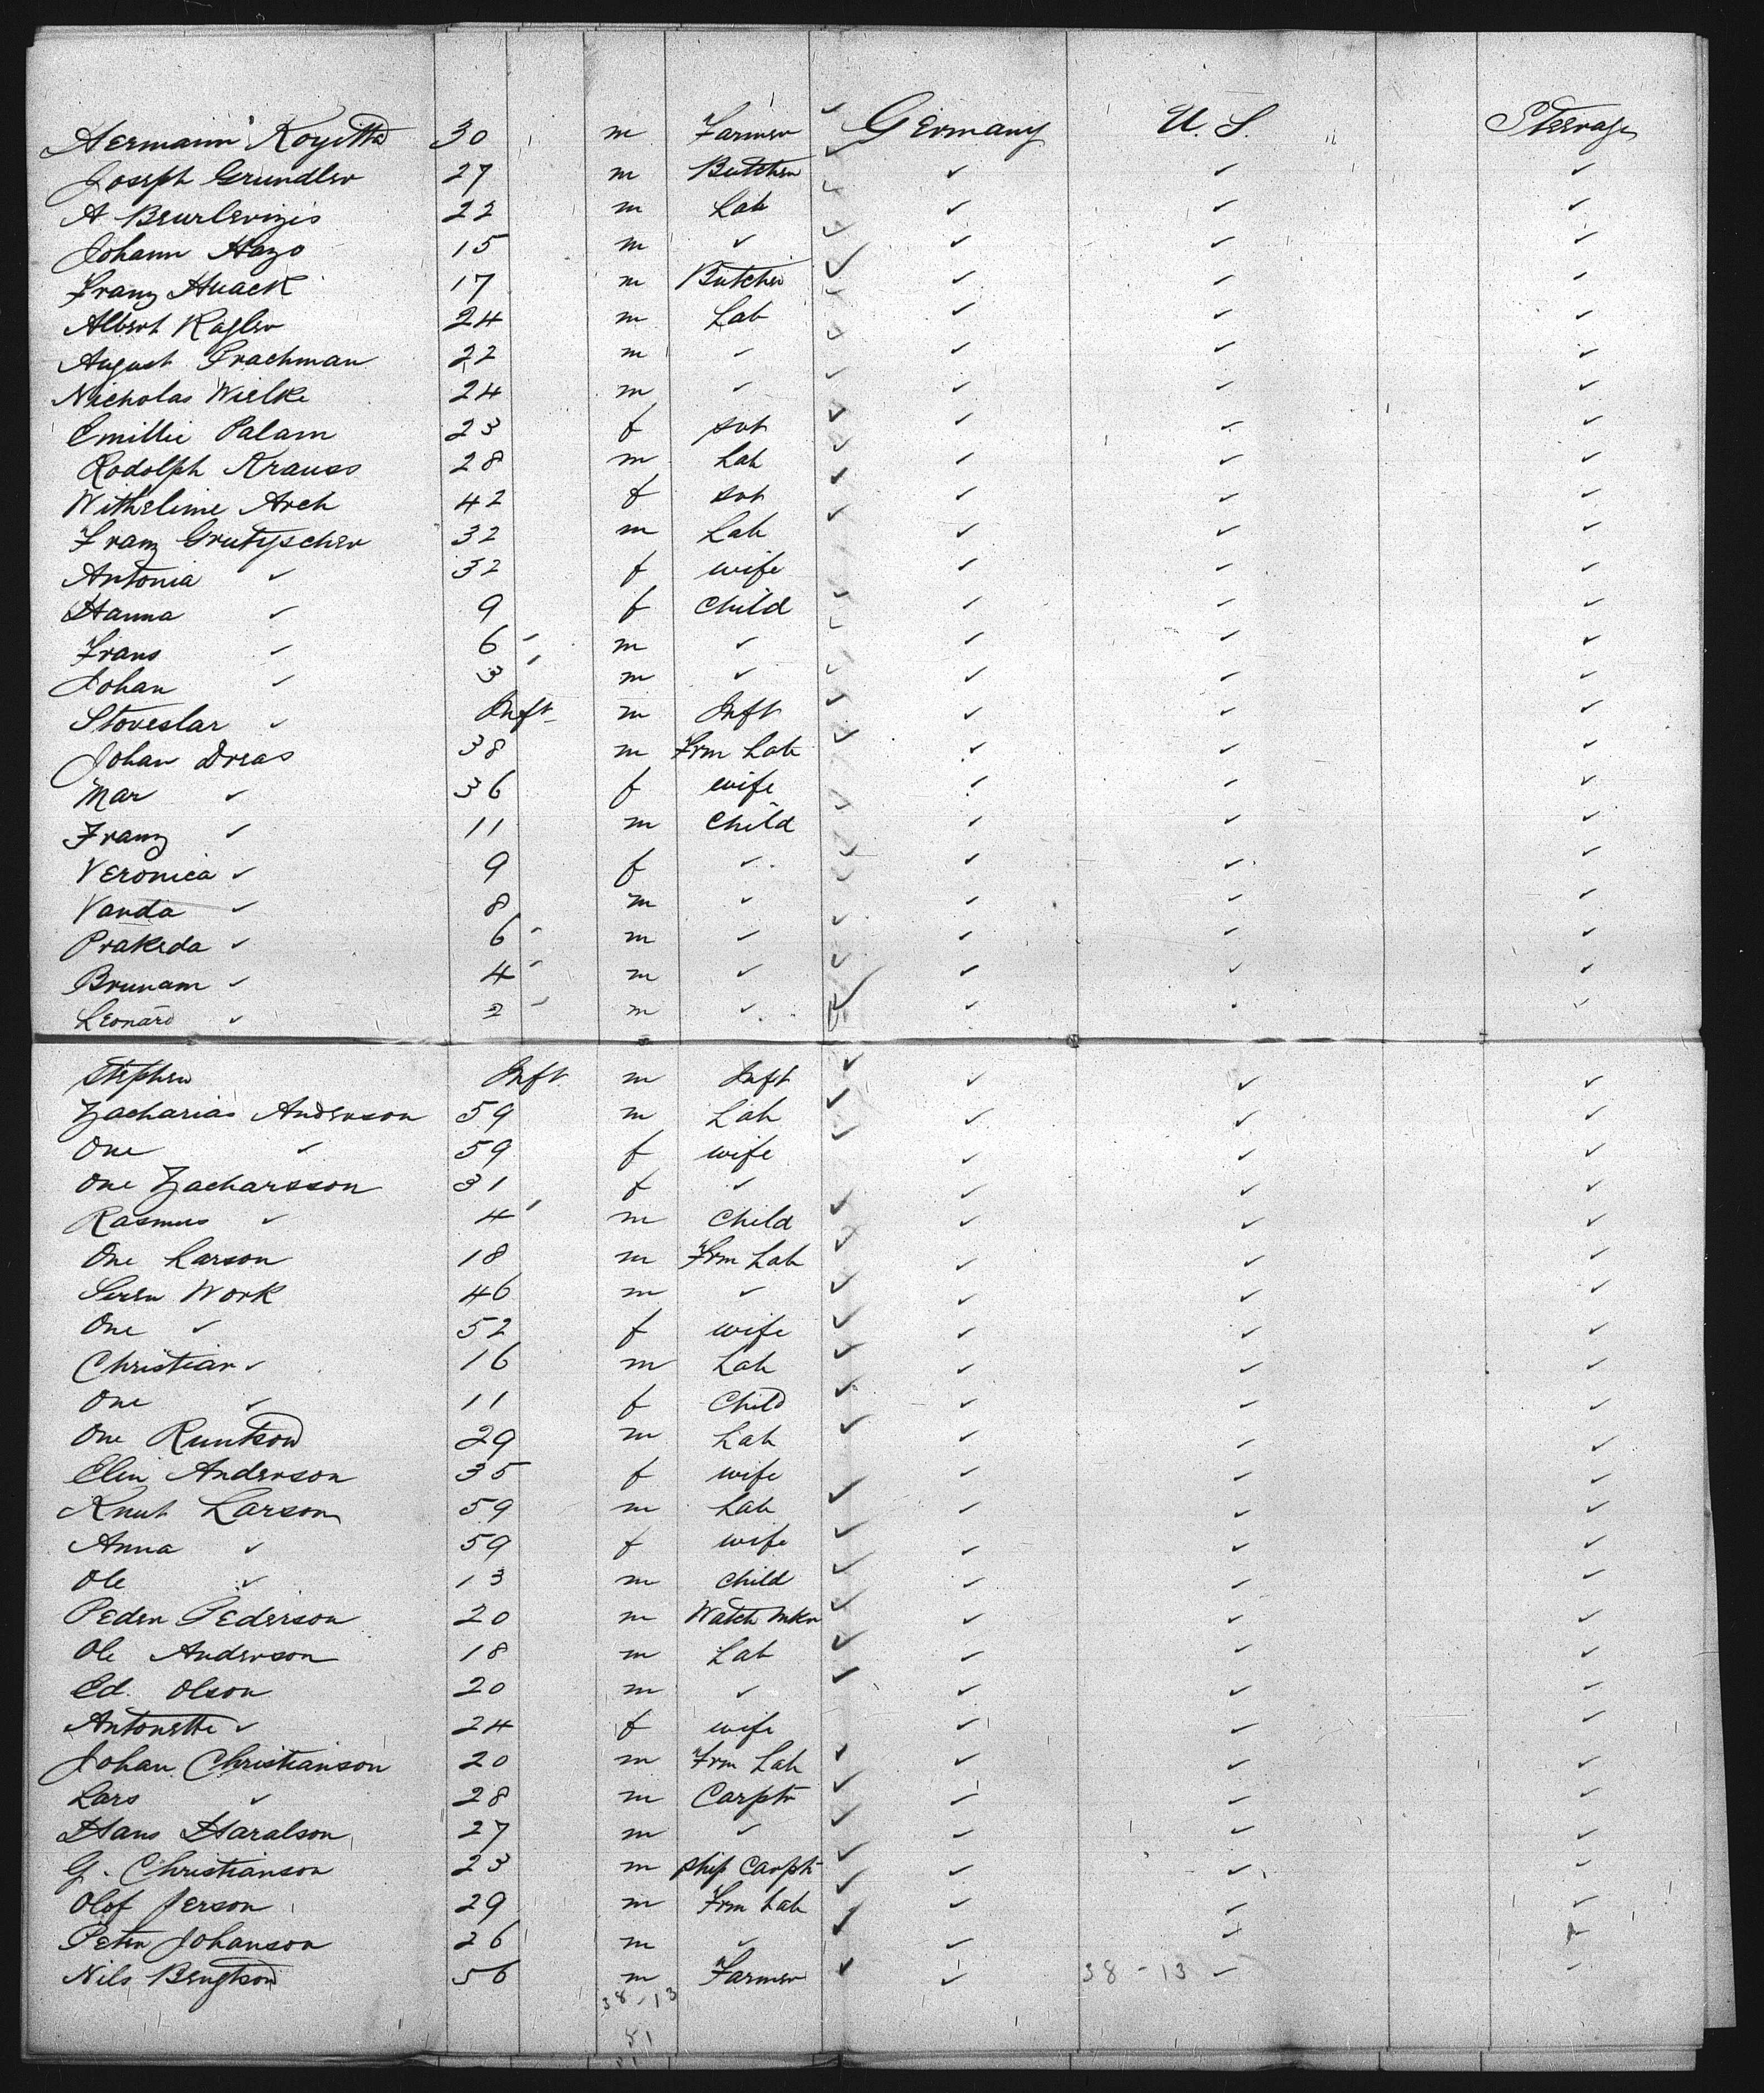 Hermann Koyitta 30 m Farmer Germany U.S. Steerage
Joseph Grundler 27 m Butcher ✓ ✓ ✓
A 22 m Lab ✓ ✓ ✓
Johann Hazo 15 m ✓ ✓ ✓ ✓
Franz Huack 17 m Butcher ✓ ✓ ✓
Albert Kagler 24 m Lab ✓ ✓ ✓
August Grachman 22 m ✓ ✓ ✓ ✓
Nicholas Wielke 24 m ✓ ✓ ✓ ✓
Emillie Palam 23 f svt ✓ ✓ ✓
Rodolph Krauss 28 m Lab ✓ ✓ ✓
Withelime Arch 42 f svt ✓ ✓ ✓
Franz Grutyscher 32 m Lab ✓ ✓ ✓
Antonia ✓ 32 f wife ✓ ✓ ✓
Hanna ✓ 9 f Child ✓ ✓ ✓
Frans ✓ 6 m ✓ ✓ ✓ ✓
Johan ✓ 3 m ✓ ✓ ✓ ✓
Stoveslar ✓ Inft m Inft ✓ ✓ ✓
Johan Dreas 38 m Frm Lab ✓ ✓ ✓
Mar ✓ 36 f wife ✓ ✓ ✓
Franz ✓ 11 m Child ✓ ✓ ✓
Veronica ✓ 9 f ✓ ✓ ✓ ✓
Vanda ✓ 8 m ✓ ✓ ✓ ✓
Prakeda ✓ 6 m ✓ ✓ ✓ ✓
Brunam ✓ 4 m ✓ ✓ ✓ ✓
Leonard ✓ 2 m ✓ ✓ ✓ ✓
Stephen Inft m Inft ✓ ✓ ✓
Zacharias Anderson 59 m Lab ✓ ✓ ✓
One ✓ 59 f wife ✓ ✓ ✓
One Zacharsson 31 f ✓ ✓ ✓ ✓
Rasmus ✓ 4 m Child ✓ ✓ ✓
One Larson 18 m Frm Lab ✓ ✓ ✓
Seren Work 46 m ✓ ✓ ✓ ✓
One ✓ 52 f wife ✓ ✓ ✓
Christian ✓ 16 m Lab ✓ ✓ ✓
One ✓ 11 f Child ✓ ✓ ✓
One Runtson 29 m Lab ✓ ✓ ✓
Elin Anderson 35 f wife ✓ ✓ ✓
Knut Larson 59 m Lab ✓ ✓ ✓
Anna ✓ 59 f wife ✓ ✓ ✓
Ole ✓ 13 m Child ✓ ✓ ✓
Peder Pederson 20 m Watch Mkr ✓ ✓ ✓
Ole Anderson 18 m Lab ✓ ✓ ✓
Ed. Olson 20 m ✓ ✓ ✓ ✓
Antonette ✓ 24 f wife ✓ ✓ ✓
Johan Christianson 20 m Frm Lab ✓ ✓ ✓
Lars ✓ 28 m Carptr ✓ ✓ ✓
Hans Haralson 27 m ✓ ✓ ✓ ✓
G. Christianson 23 m Ship Carptr ✓ ✓ ✓
Olof Jerson 29 m Frm Lab ✓ ✓ ✓
Peter Johanson 26 m ✓ ✓ ✓ ✓
Nils Bengtson 56 m Farmer ✓ 38-13 ✓ ✓
38-13
51